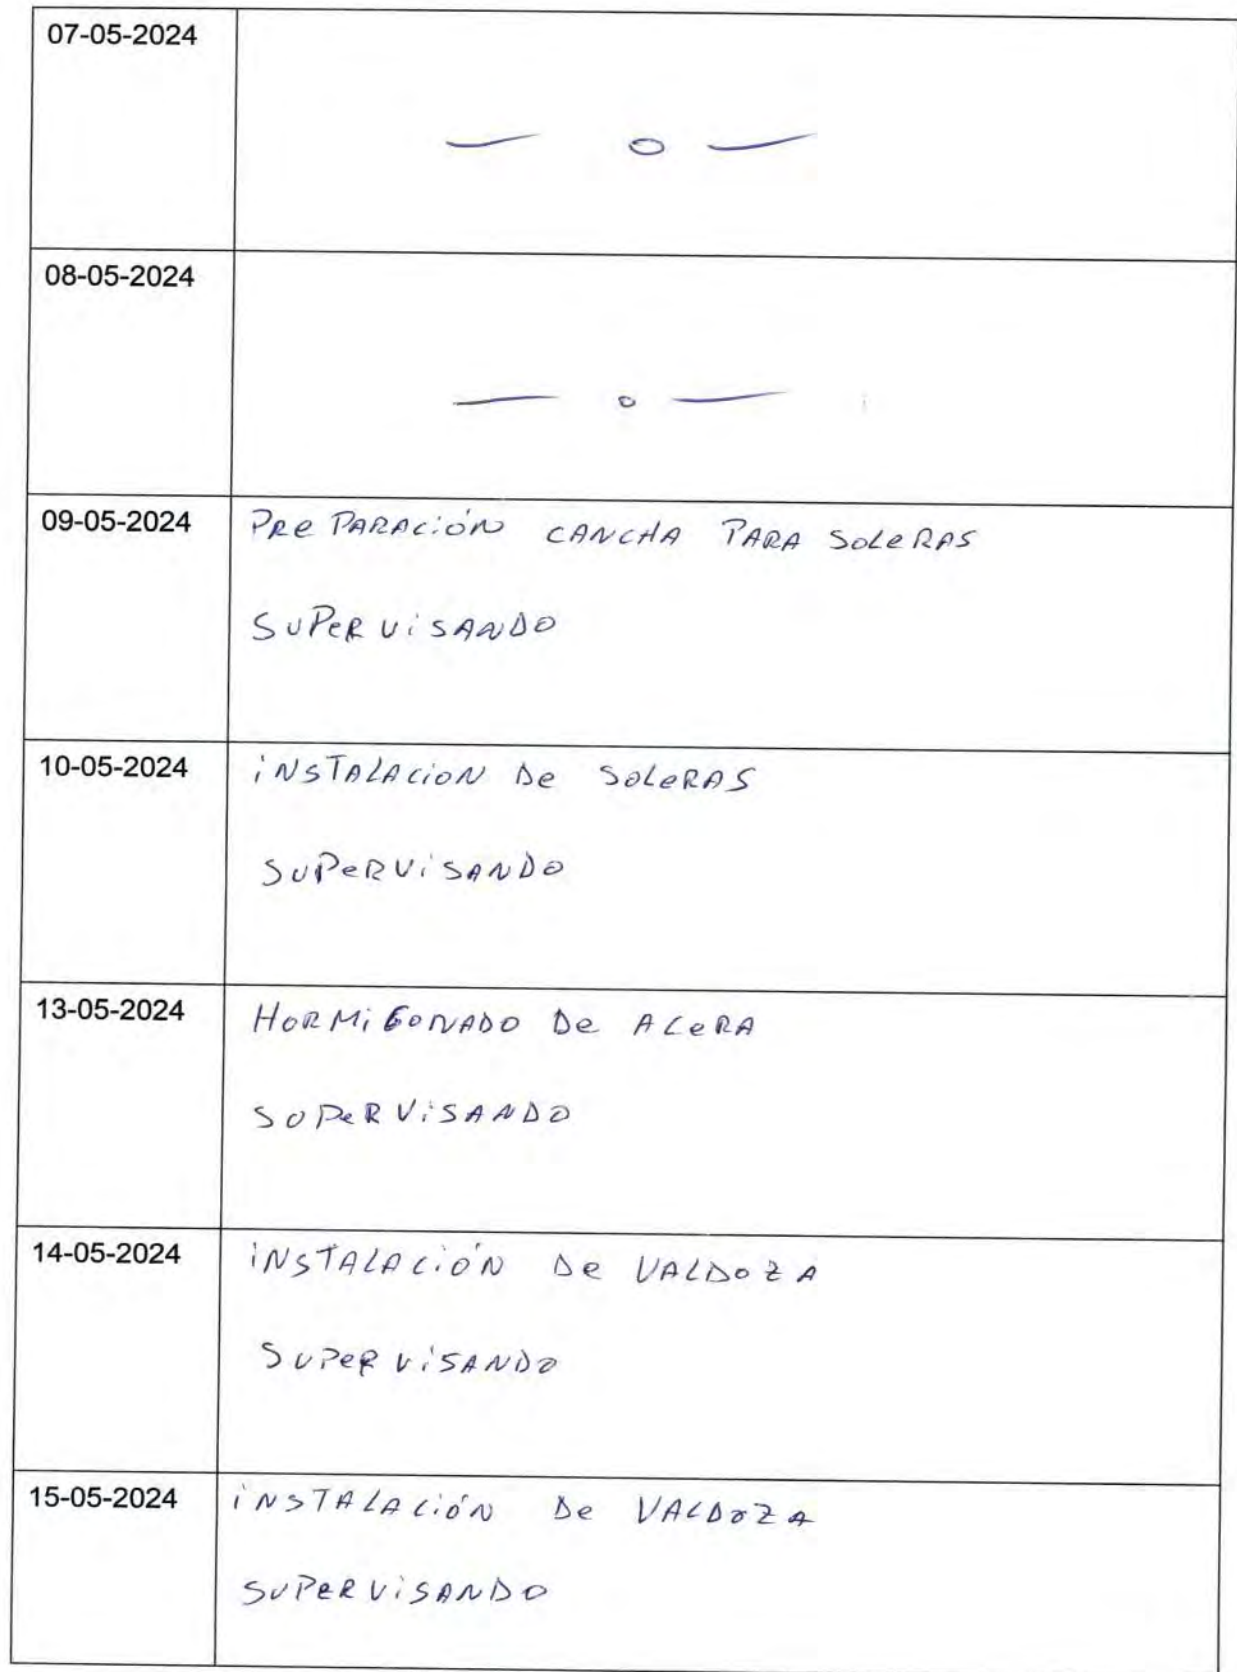 07-05-2024
— o —
08-05-2024
— o —
09-05-2024
PRePARACiÓN CANCHA PARA SOLeRAS
SUPeRViSANDO
10-05-2024
iNSTALACioN De SOLeRAS
SUPeRViSANDO
13-05-2024
HORMiGONADO De ACeRA
SOPeRViSANDO
14-05-2024
iNSTALACiÓN De VALDOZA
SUPeRViSANDO
15-05-2024
iNSTALACiÓN De VALDOZA
SUPeRViSANDO